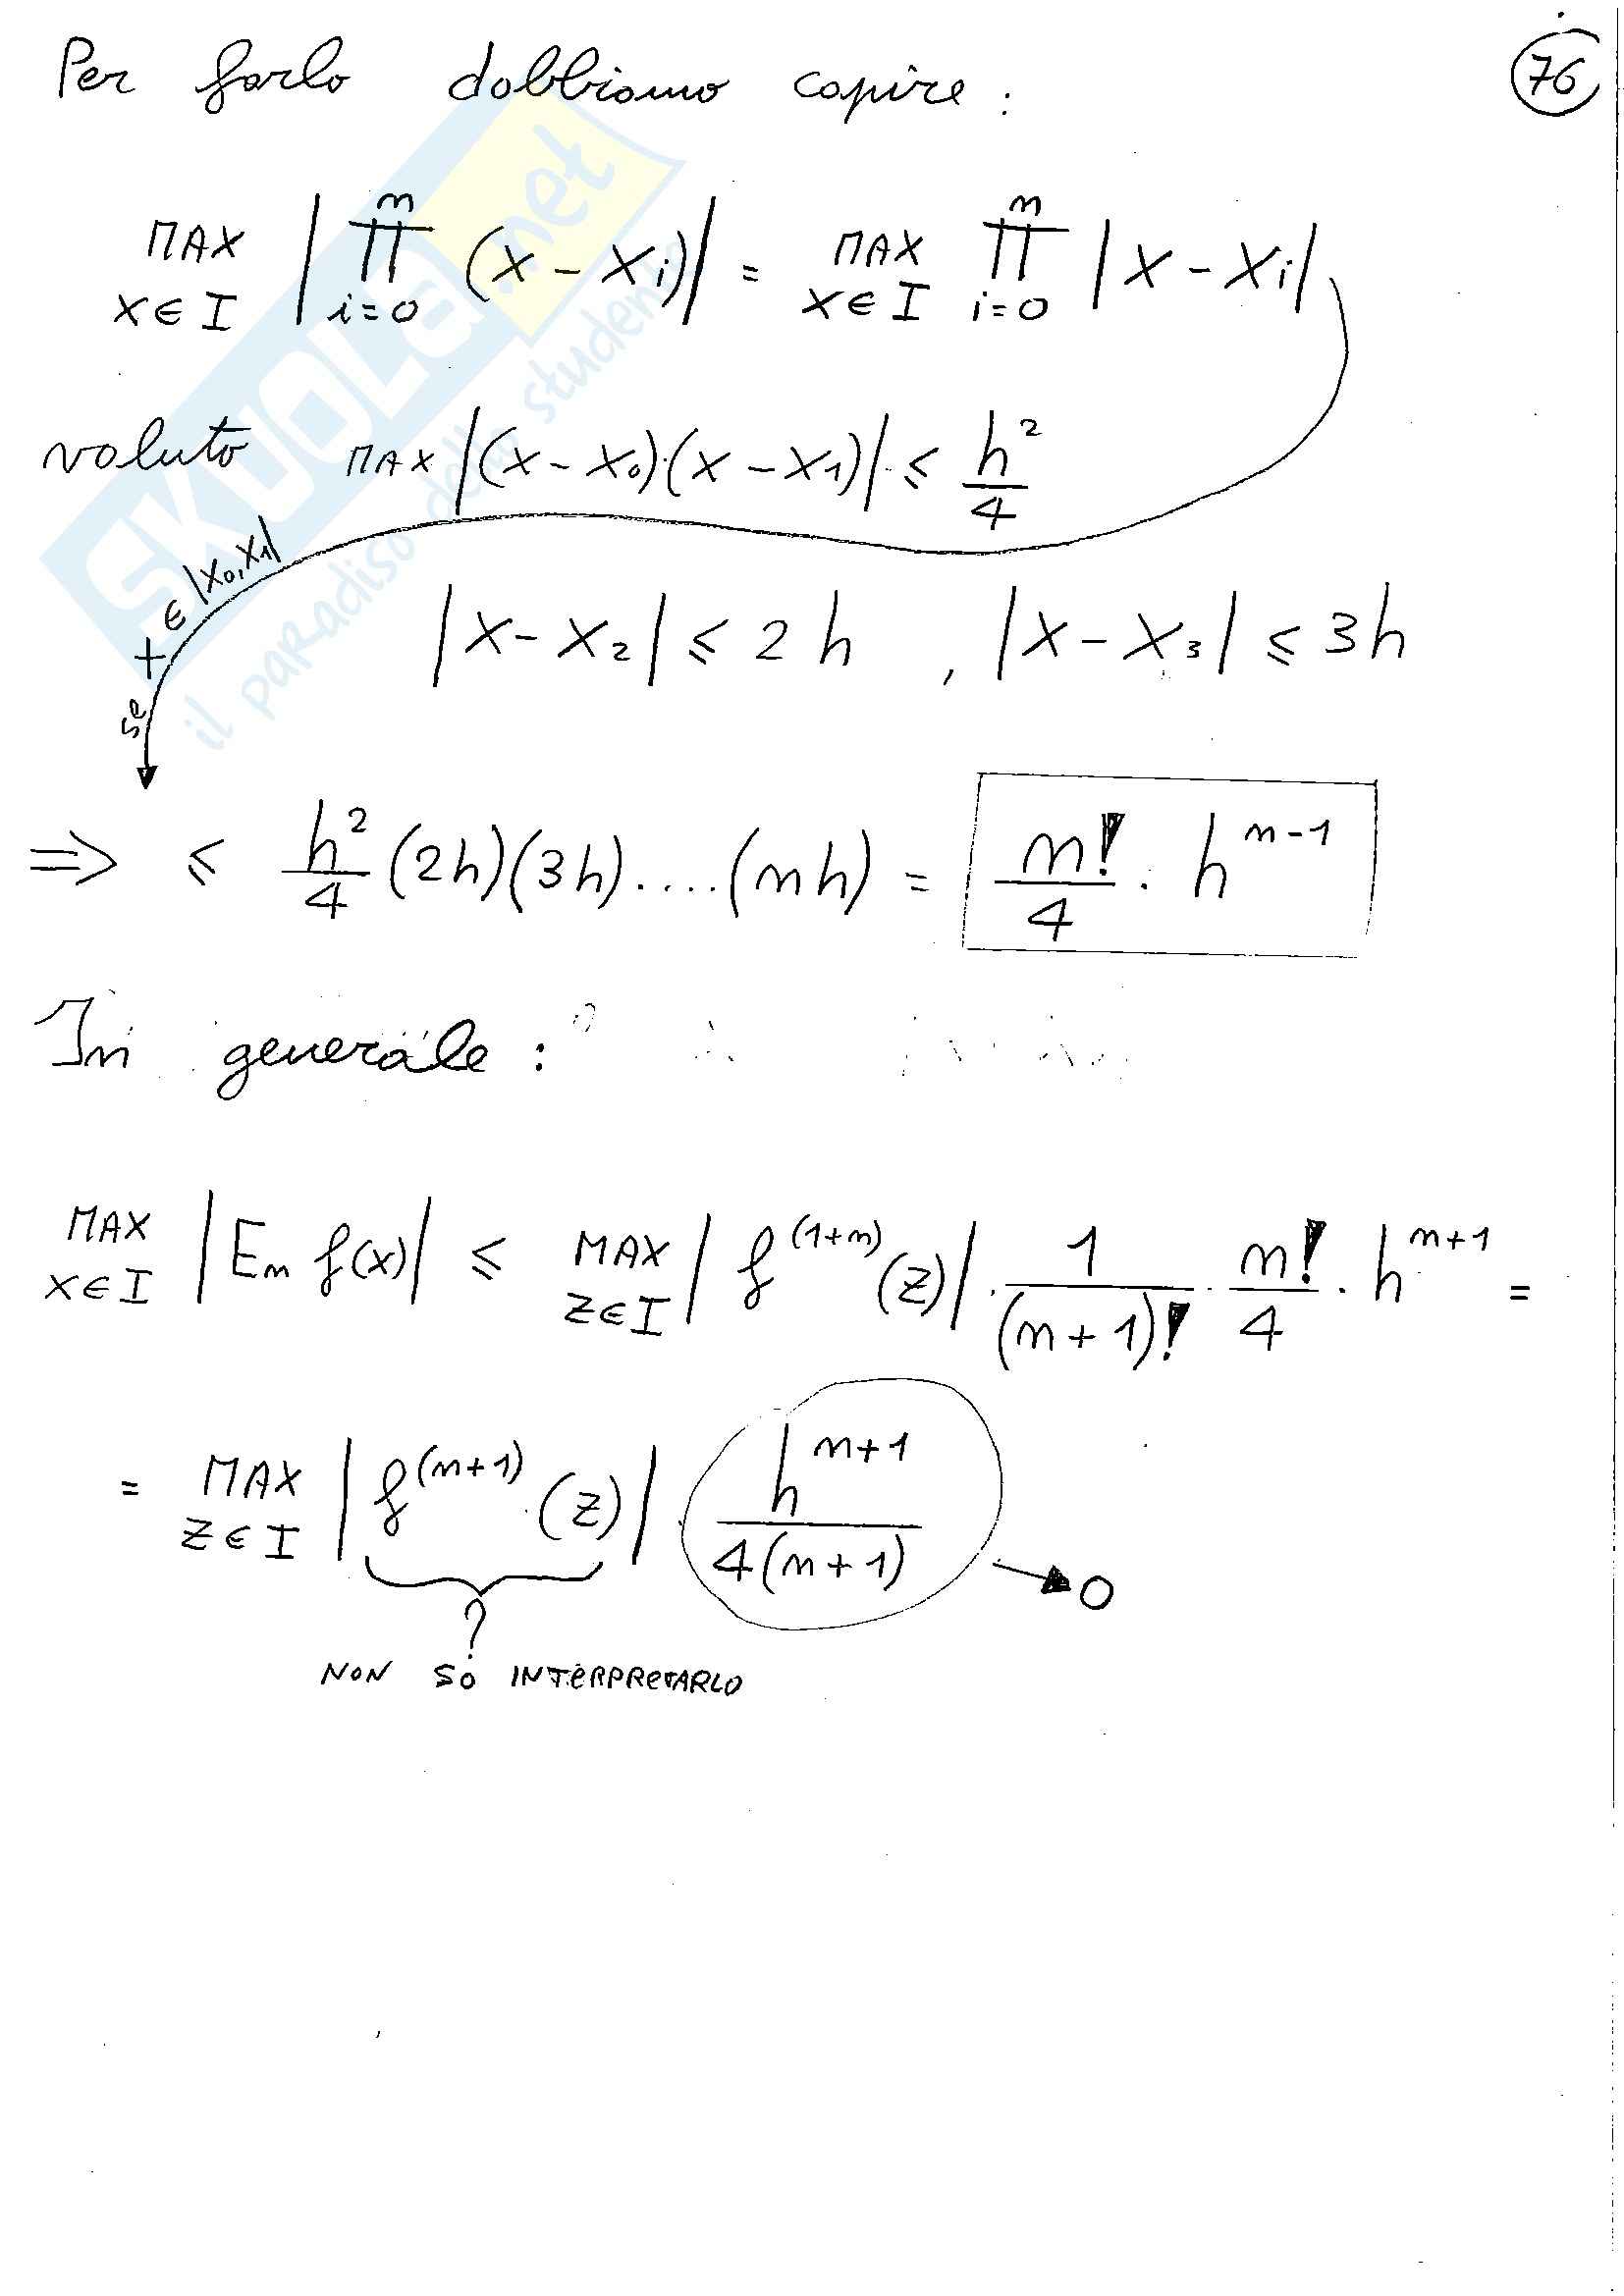 Per farlo dobbiamo capire :
76
MAX x∈I | ∏ i=0 n (x - xi) | = MAX x∈I ∏ i=0 n | x - xi |
valuto MAX |(x - x0)·(x - x1)| ≤ h²/4
se x ∈ |x0, x1|
|x - x2| ≤ 2h , |x - x3| ≤ 3h
⇒ ≤ h²/4 (2h)(3h)....(nh) = n!/4 · h^(n-1)
In generale :
MAX x∈I |En f(x)| ≤ MAX z∈I | f^(1+n) (z)| · 1/(n+1)! · n!/4 · h^(n+1) =
= MAX z∈I | f^(n+1) (z)| · h^(n+1)/4(n+1) → 0
?
NON SO INTERPRETARLO
SKUOLA.net
il paradiso dello studente